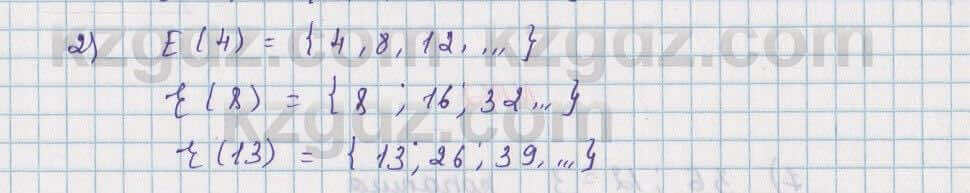 2) E (4) = { 4, 8, 12, ... }
E (8) = { 8 ; 16 ; 32 ... }
E (13) = { 13 ; 26 ; 39, ... }
kzgdz.com
kzgdz.com